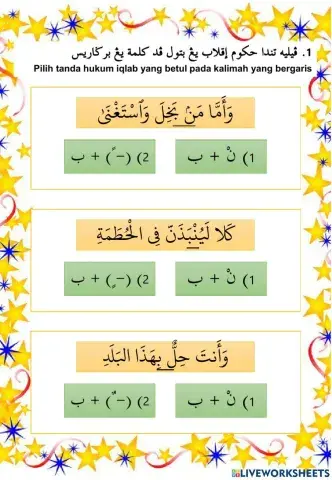 1. ڤيليه تندا حكوم إقلاب يڠ بتول ڤد كلمة يڠ برݢاريس
Pilih tanda hukum iqlab yang betul pada kalimah yang bergaris
وَأَمَّا مَنۢ بَخِلَ وَٱسْتَغْنَىٰ
1) نْ + ب
2) (ـًـ) + ب
كَلا لَيُنْبَذَنَّ فِى الْحُطَمَةِ
1) نْ + ب
2) (ـٍـ) + ب
وَأَنتَ حِلٌّ بِهَذَا البَلَدِ
1) نْ + ب
2) (ـٌـ) + ب
LIVEWORKSHEETS